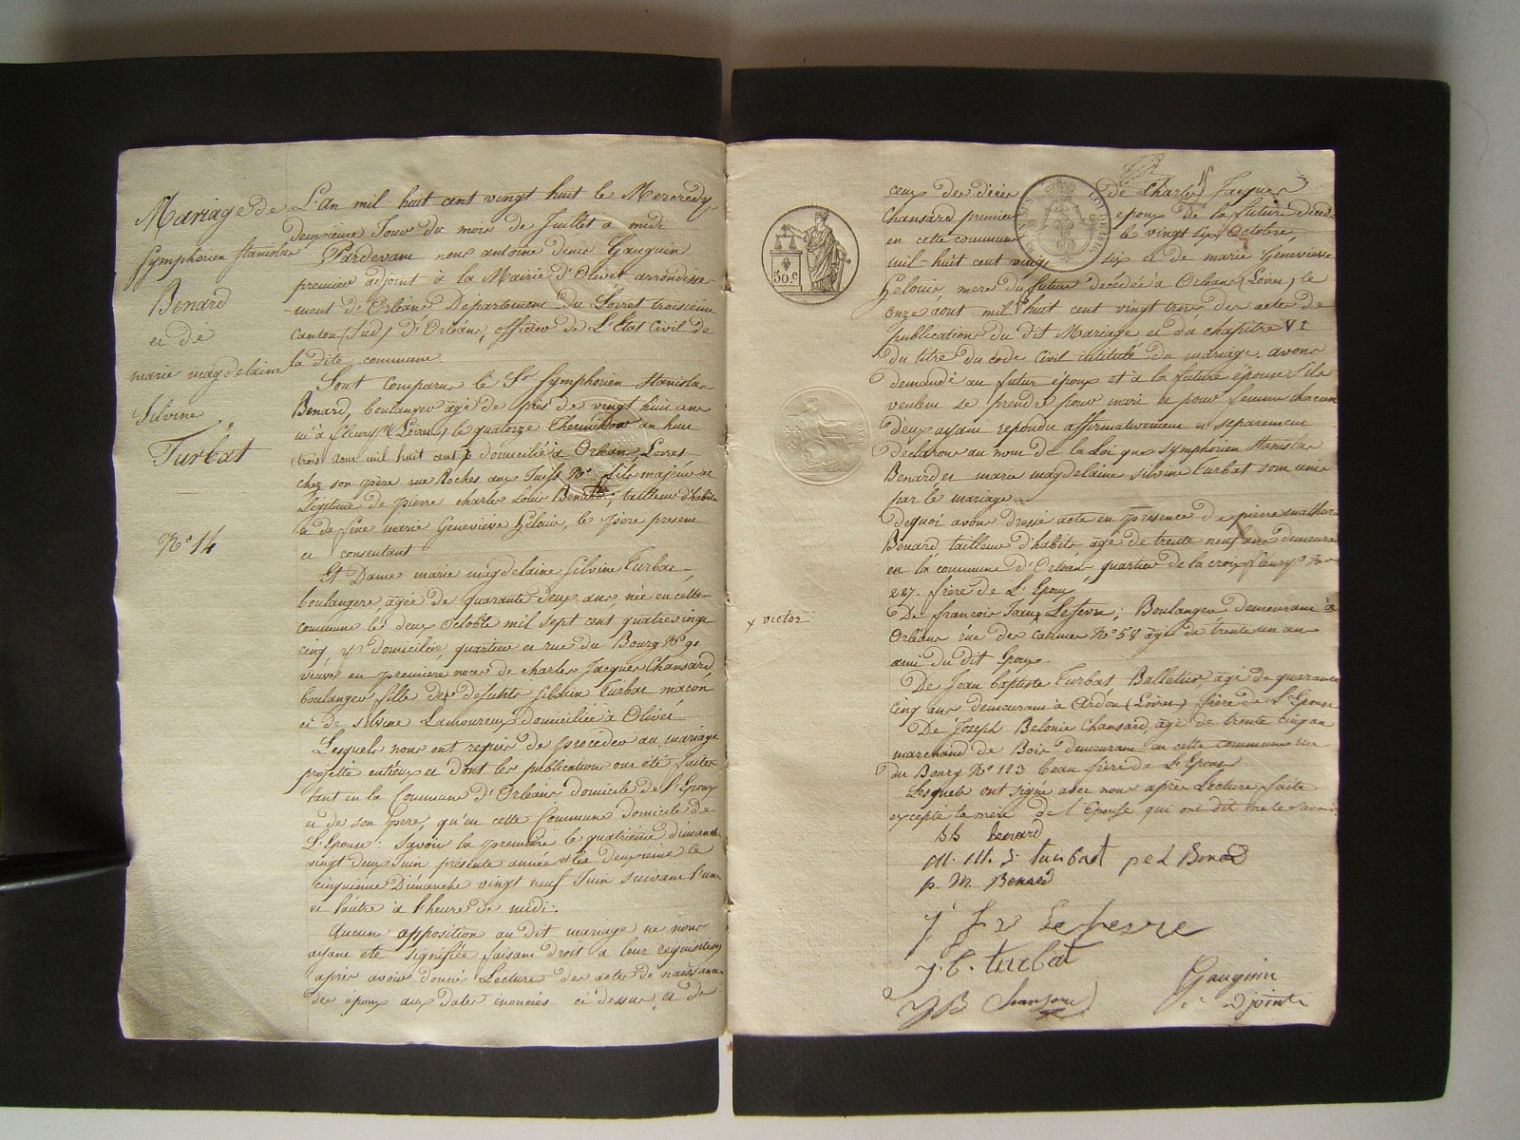 Mariage de
Symphorien Stanislas
Benard
et de
marie magdelaine
Silvine
Turbat
No 14
L'An mil huit cent vingt huit le Mercredy
deuxieme Jour du mois de Juillet a midi
Pardevant nous antoine denis Gauguin
premier adjoint à la Mairie d'Olivet arrondisse
-ment d'Orléans Departement du Loiret troisieme
canton (sud) d'Orleans, officier de L'Etat Civil de
la dite commune
Sont comparu le Sr Symphorien Stanislas
Benard, boulanger agé de près de vingt huit ans
né à fleury (Loiret) le quatorze Thermidor an huit
trois aout mil huit cent domicilié à Orléans, Loiret
chez son père rue Roches aux Juifs No fils majeur et
Légitime de pierre charles Louis Benard, tailleur d'habits
et de feue marie Geneviève Gelouis, le père present
et consentant
Et Dame marie magdelaine Silvine Turbat,
boulangere, agée de quarante deux ans, née en cette
commune le deux Octobre mil sept cent quatre vingt
cinq, y domiciliée, quartier et rue du Bourg No 91
veuve en premiere noces de charles Jacques Chansard
boulanger fille des defunts silvain Turbat macon
et de silvine Lamoureux Domiciliée à Olivet
Lesquels nous ont requis de proceder au mariage
projetté entreux et dont les publications ont été faites
tant en la Commune d'Orléans domicile de l'Epoux
et de son pere, qu'en cette Commune domicile de
L'Epouse: Savoir la premiere le quatrieme dimanche
vingt deux Juin presente année et la deuxieme le
cinquieme Dimanche vingt neuf Juin suivant l'une
et l'autre à l'heure de midi.
Aucun opposition au dit mariage ne nous
ayant ete signifiée faisant droit a leur requisition
après avoir donné Lecture des actes de naissance
des époux aux dates énoncées ci dessus, et de
ceux des décès de Charles Jacques
Chansard premier epoux de la future décédé
en cette commune le vingt six Octobre,
mil-huit cent vingt six et de marie Geneviève
Gelouis, mere du futur decédée à Orléans (Loiret) le
onze aout mil huit cent vingt trois, des actes de
publications du dit Mariage et du chapitre VI
du titre du code Civil intitulé du mariage, avons
demandé au futur époux et à la future épouse s'ils
veulent se prendre pour mari et pour femme chacun
d'eux ayant repondu affirmativement et séparement
declarons au nom de la Loi que Symphorien Stanislas
Benard et marie magdelaine silvine Turbat sont unis
par le mariage
dequoi avons dressé acte en présence de pierre
Benard tailleur d'habits agé de trente neuf ans demeurant
en la commune d'Orléans, quartier de la croix fleury No
227. frère de L'Epoux
De francois Lefevre; Boulanger demeurant à
x victor
Orléans rue des carmes No 58 agé de trente un ans
ami du dit Epoux.
De Jean baptiste Turbat, Balletier, agé de quarante
cinq ans demeurant à Ardon (Loiret) frère de L'Epouse
De Joseph Belonie Chansard, agé de trente cinq ans
marchand de Bois demeurant en cette commune rue
du Bourg No 113 beau frère de L'Epouse
Lesquels ont signé avec nous après Lecture faite
excepté la mère de l'Epouse qui ont dit ne le savoir
SS benard
M. M. S. turbat p c L Benard
p. M Benard
J F V Lefevre
J. B. turbat
J B Chansard
Gauguin
adjoint
50 c